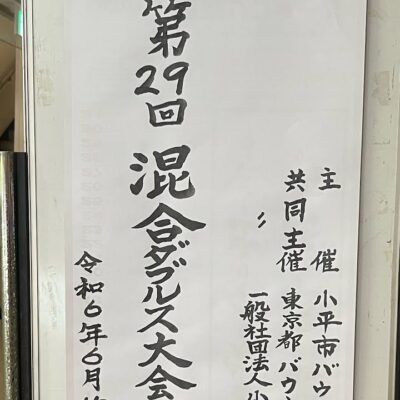 主 催 小平市バウ
共同主催 東京都バウ
〃 一般社団法人小
第29回 混合ダブルス大会
令和6年6月